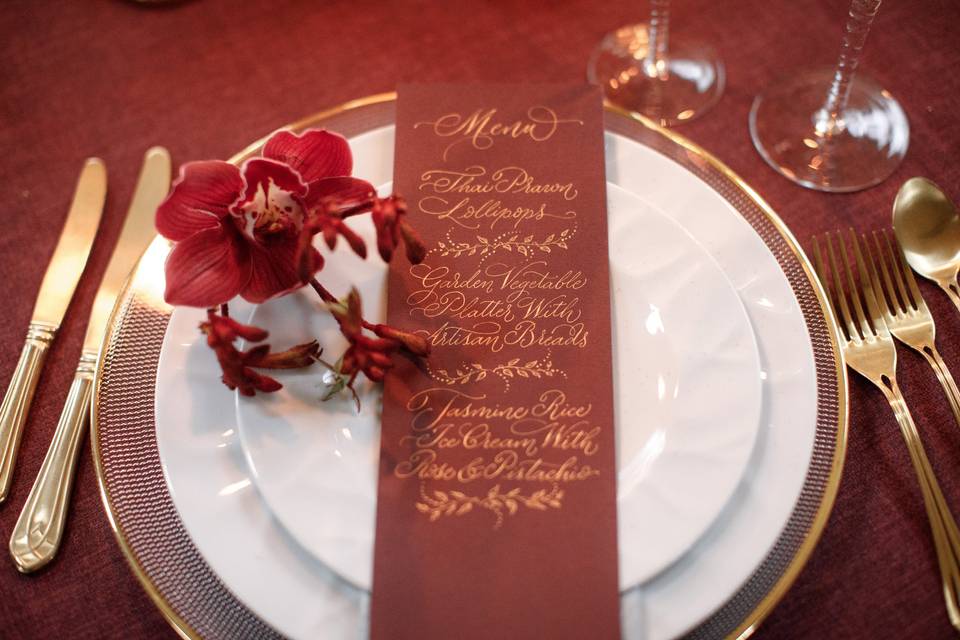 Menu
Thai Prawn
Lollipops
Garden Vegetable
Platter With
Artisan Breads
Jasmine Rice
Ice Cream With
Rose & Pistachio